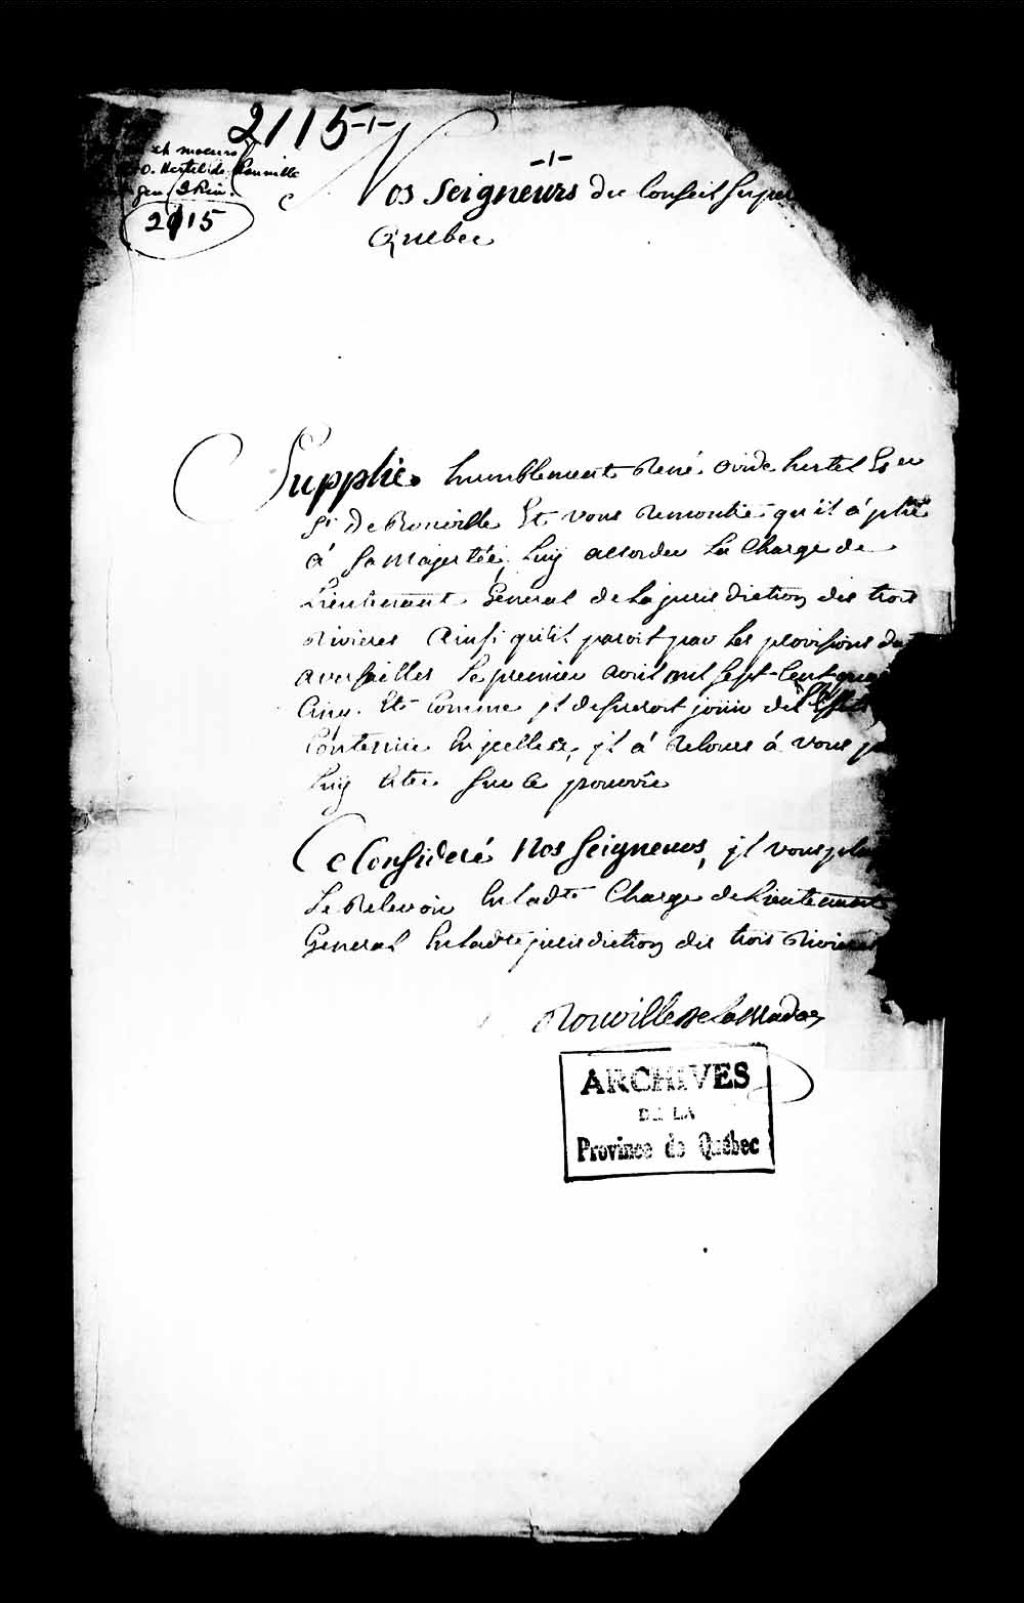 2115 -1-
et moeurs
O. Hertel de Rouville
Gen 3 Riv.
2115
-1-
Nos Seigneurs du Conseil Super
Quebec
Supplie humblement René ovide hertel
Sr De Rouville Et vous remontre qu'il á plû
á Sa Majestée, luy accorder La Charge de
Lieutenant General de La jurisdiction des trois
rivieres Ainsi qu'il paroit par les provisions
a versailles le premier avril mil sept-Cent
Cinq. Et Comme jl desireroit joüir des Effets
Contenüe En jcelles, jl á recours á vous
luy Etre sur Ce pourvûe
Ce Consideré Nos Seigneurs, jl vous
Le Recevoir En ladte Charge de Lieutenant
General En ladte jurisdiction des trois Rivieres
Rouville
ARCHIVES
DE LA
Province de Québec